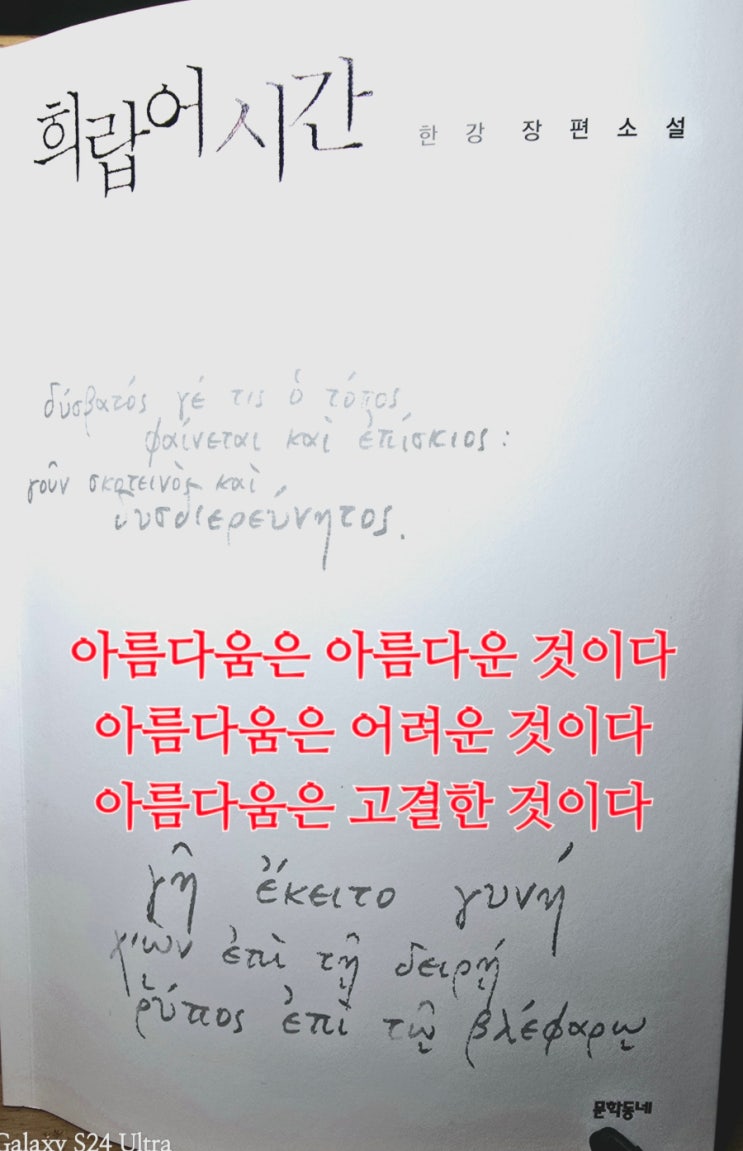 희랍어 시간
한 강 장 편 소 설
δύσβατός γέ τις ὁ τόπος
φαίνεται καὶ ἐπίσκιος:
γοῦν σκοτεινὸς καὶ
δυσδιερεύνητος.
아름다움은 아름다운 것이다
아름다움은 어려운 것이다
아름다움은 고결한 것이다
γῆ ἔκειτο γυνή
χιὼν ἐπὶ τῇ δειρῇ
ῥύπος ἐπὶ τῷ βλέφαρῳ
문학동네
Galaxy S24 Ultra